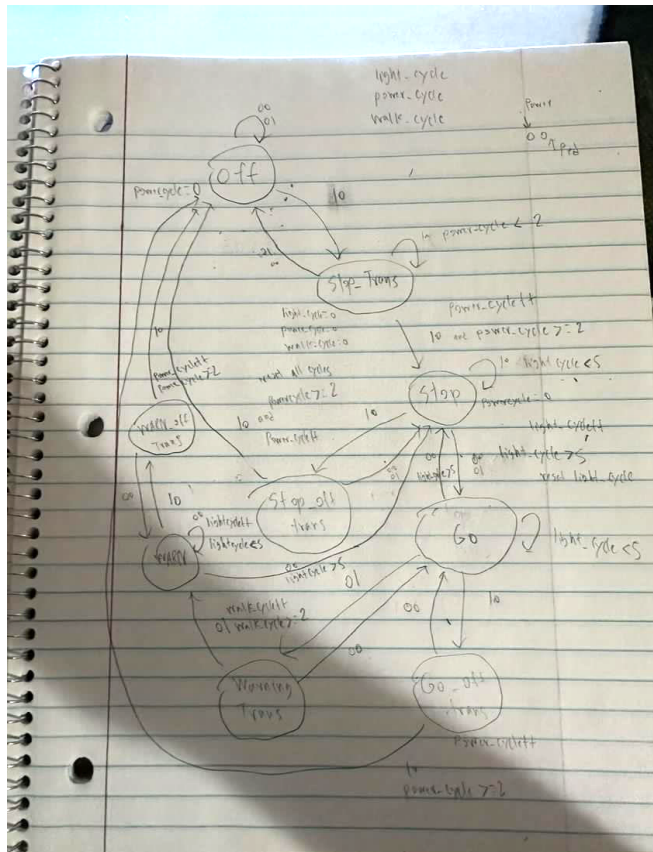 light_cycle
power_cycle
walk_cycle
Power
00
Ped
00
01
Off
power_cycle=0
10
power_cycle < 2
Stop_Trans
light_cycle=0
power_cycle=0
walk_cycle=0
power_cycle++
10 and power_cycle >= 2
reset all cycles
powercycle >= 2
10 and
Power_cycle++
10
10 light cycle < 5
Stop
Powercycle=0
light_cycle++
light_cycle > 5
reset light_cycle
00
01
10
Power_cycle++
Power_cycle >= 2
WARN_off
Trans
00
10
Stop_off
trans
00
01
00
lightcycle > 5
Go
light_cycle < 5
00
lightcycle++
lightcycle < 5
WARN
00
lightcycle > 5
01
walk_cycle++
01 walk_cycle >= 2
00
00
10
Warning
Trans
Go_off
trans
Power_cycle++
10
power_cycle >= 2